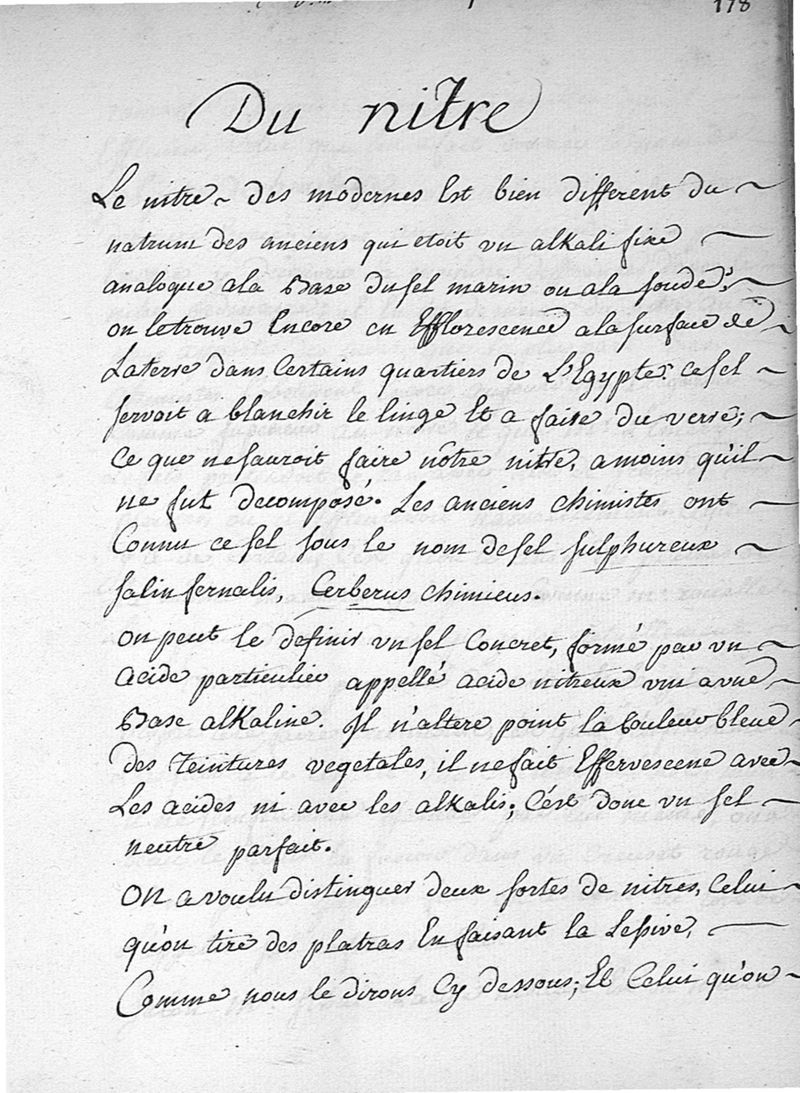 178
Du nitre
Le nitre des modernes Est bien different du
natrum des anciens qui etoit un alkali fixe
analogue a la Base du sel marin ou a la soude,
on le trouve Encore en Efflorescence a la surface de
La terre dans Certains quartiers de L'Egypte, ce sel
servoit a blanchir le linge Et a faire du verre;
Ce que ne sauroit faire nôtre nitre, a moins qu'il
ne fut decomposé. Les anciens chimistes ont
Connu ce sel sous le nom de sel sulphureux
sal infernalis, Cerberus chimicus.
on peut le definir un sel Concret, formé par un
acide particulier appellé acide nitreux uni a une
Base alkaline. Il n'altere point la Couleur bleue
des teintures vegetales, il ne fait Effervescene avec
Les acides ni avec les alkalis; C'est donc un sel
neutre parfait.
On a voulu distinguer deux sortes de nitres, Celui
qu'on tire des platras En faisant la Lessive,
Comme nous le dirons Cy dessous; Et Celui qu'on